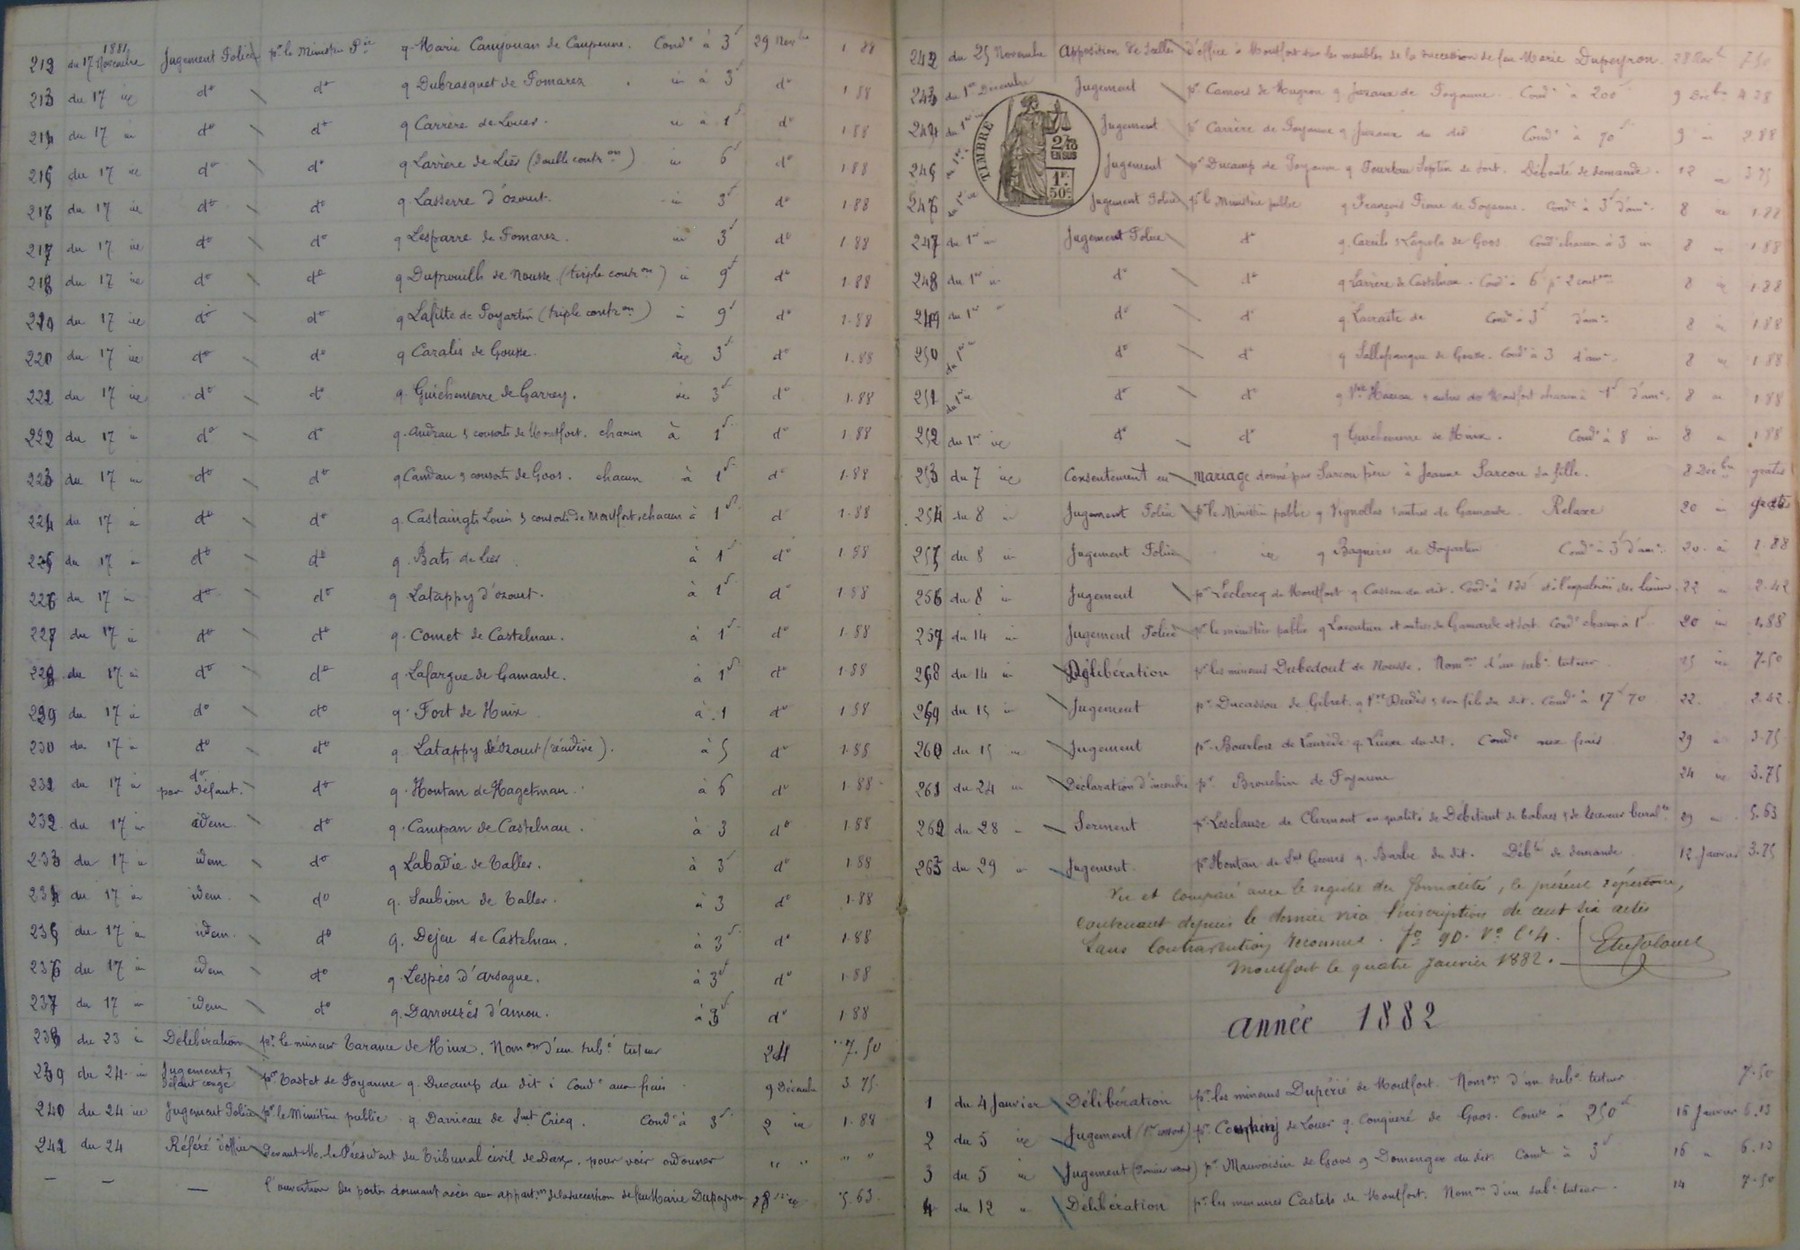 212 du 17 Novembre 1881 Jugement Police pr le Ministère Pic q. Marie Camjouan de Caupenne. Condé à 3f 29 Novbre 1.88
213 du 17 ie do do q Dubrasquet de Pomarez in à 3f do 1.88
214 du 17 in do do q Carrère de Louer. in à 1f do 1.88
215 du 17 ie do do q Larrère de Lier (double contron) in 6f do 1.88
216 du 17 ie do do q Lasserre d'ozourt. in 3f do 1.88
217 du 17 ie do do q Lesparre de Pomarez. in 3f do 1.88
218 du 17 ie do do q Duprouilh de Nousse (triple contron) in 9f do 1.88
219 du 17 ie do do q Lafitte de Poyartin (triple contron) in 9f do 1.88
220 du 17 ie do do q Caralis de Gousse. ie 3f do 1.88
221 du 17 ie do do q Guichemerre de Garrey. ie 3f do 1.88
222 du 17 in do do q. Audrau & consorts de Montfort. chacun à 1f do 1.88
223 du 17 in do do q Candau & consorts de Goos. chacun à 1f do 1.88
224 du 17 in do do q. Castaingts Louis & consorts de Montfort, chacun à 1f d 1.88
225 du 17 in do do q. Bats de Lier à 1f do 1.88
226 du 17 in do do q Latappy d'ozourt. à 1f do 1.88
227 du 17 in do do q. Comet de Castelnau. à 1f do 1.88
228 du 17 in do do q Lafargue de Gamarde. à 1f do 1.88
229 du 17 in do do q. Fort de Hinx à 1 do 1.88
230 du 17 in do do q Latappy d'ozourt (récidive). à 5 do 1.88
231 du 17 in do par défaut. do q. Hontan de Hagetmau. à 6 do 1.88
232 du 17 in idem do q. Campan de Castelnau. à 3 do 1.88
233 du 17 in idem do q Labadie de Taller. à 3f do 1.88
234 du 17 in idem do q. Saubion de Taller. à 3 do 1.88
235 du 17 in idem do q. Dejeu de Castelnau. à 3f do 1.88
236 du 17 in idem do q Lespès d'arsague. à 3f do 1.88
237 du 17 idem do q. Darrouzès d'amou. à 3f do 1.88
238 du 23 in Délibération pr le mineur Tarance de Hinx. Nomon d'un subé tuteur 24 " 7.50
239 du 24 in Jugement, défaut congé pr Tastet de Poyanne q. Ducamp du dit in Condé aux frais 9 Décembre 3.75
240 du 24 ie Jugement Police pr le Ministère public q Darrieau de St Cricq. Condé à 3f 2 ie 1.88
241 du 24 Référé d'office devant M. le Président du Tribunal civil de Dax, pour voir ordonner " " " "
— — — l'ouverture des portes donnant accès aux appartts de la succession de feu Marie Dupeyron 28 9bre 5.63
242 du 25 Novembre Apposition de scellés d'office à Montfort sur les meubles de la succession de feu Marie Dupeyron. 28 Novbre 7.50
243 du 1er Décembre Jugement pr Camors de Mugron q Juzaux de Poyanne. Condé à 200f 9 Décbre 4.28
TIMBRE 2/10 EN SUS 1F. 50C.
244 du 1er Jugement pr Carrère de Poyanne q Juzaux du dit Condé à 70f 9 in 2.88
245 Jugement pr Ducamp de Poyanne q Pourtau de dort. Débouté de demande. 12 in 3.75
246 Jugement Police pr le Ministère public q François Pierre de Poyanne. Condé à 3f d'am. 8 in 1.88
247 du 1er Jugement Police do q. Caralis & Lagüele de Goos Condé chacun à 3 in 8 1.88
248 du 1er do do q Larrère de Castelnau. Condé à 6f pr 2 conton 8 1.88
249 du 1er do do q Larraite de Condé à 3f d'am. 8 in 1.88
250 du 1er do do q Sallefranque de Gousse. Condé à 3 d'am. 8 1.88
251 du 1er do do q & autres de Montfort chacun à 1f d'am. 8 in 1.88
252 du 1er ie do do q Guichemerre de Hinx. Condé à 8 in 8 1.88
253 du 7 ie Consentement en mariage donné par Sarcou père à Jeanne Sarcou sa fille. 8 Décbre gratis
254 du 8 in Jugement Police pr le Ministère public q Vignolles & autres de Gamarde. Relaxe 20 in gratis
255 du 8 in Jugement Police ie q Bagnères de Poyartin Condé à 3f d'am. 20 in 1.88
256 du 8 in Jugement pr Leclercq de Montfort q Cassou du dit. Condé à et à l'expulsion des lieux. 22 2.42
257 du 14 in Jugement Police pr le ministère public q Lacouture et autres de Gamarde et dort. Condé chacun à 1f 20 in 1.88
258 du 14 in Délibération pr les mineurs Dubedout de Nousse. Nomon d'un subé tuteur 25 in 7.50
259 du 15 in Jugement pr Ducassou de Gibret q Vve Dudès & son fils du dit. Condé à 17f 70 22. 2.42
260 du 15 in Jugement pr Bourlon de Laurède q Lieux du dit. Condé aux frais 29 3.75
261 du 24 in Déclaration d'incendie pr Brouchin de Poyanne 24 in 3.75
262 du 28 Serment pr Lesclauze de Clermont en qualité de Débitant de tabacs & de Receveur buralte 29 5.63
263 du 29 in Jugement pr Hontan de St Geours q. Barbe du dit. Débté de demande. 12 Janvier 3.75
Vu et comparé avec le registre des formalités, le présent répertoire,
contenant depuis le dernier visa l'inscription de cent six actes
Sans Contravention reconnue. fo 90. Vo C. 4.
Montfort le quatre Janvier 1882.
année 1882
1 du 4 Janvier Délibération pr les mineurs Dupérié de Montfort. Nomon d'un subé tuteur 7.50
2 du 5 ie Jugement (1er ressort) pr de Louer q. Conquéré de Goos. Condé à 250f 16 Janvier 6.13
3 du 5 in Jugement (Dernier ressort) pr Mauvoisin de Goos q Domenger du dit. Condé à 3f 16 6.13
4 du 12 " Délibération pr les mineurs Castets de Montfort. Nomon d'un subé tuteur 14 7.50